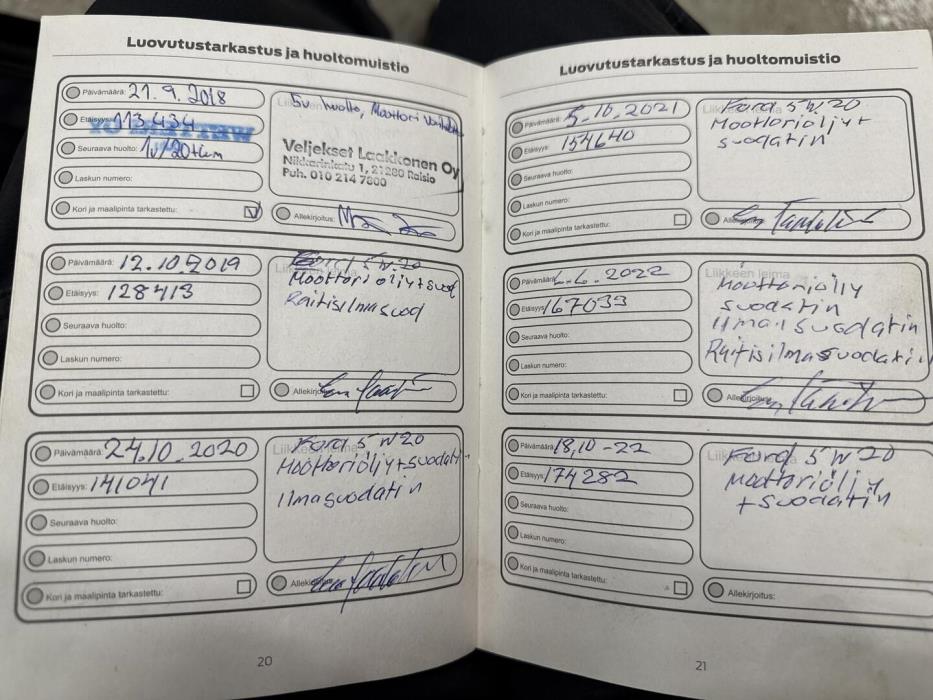 Luovutustarkastus ja huoltomuistio
Päivämäärä: 21.9.2018
Etäisyys: 113434
Seuraava huolto: 1v/20tkm
Laskun numero:
Kori ja maalipinta tarkastettu:
5v huolto, Moottori
Veljekset Laakkonen Oy
Nikkarinkatu 1, 21280 Raisio
Puh. 010 214 7800
Allekirjoitus:
Päivämäärä: 12.10.2019
Etäisyys: 128413
Seuraava huolto:
Laskun numero:
Kori ja maalipinta tarkastettu:
Ford 5W20
Moottoriöljy+suod
Raitisilmasuod
Päivämäärä: 24.10.2020
Etäisyys: 141041
Seuraava huolto:
Laskun numero:
Kori ja maalipinta tarkastettu:
Ford 5W20
Moottoriöljy+suodatin
Ilmasuodatin
20
Luovutustarkastus ja huoltomuistio
Päivämäärä: 5.10.2021
Etäisyys: 154640
Seuraava huolto:
Laskun numero:
Kori ja maalipinta tarkastettu:
Ford 5W20
Moottoriöljy+
suodatin
Päivämäärä: 6.2022
Etäisyys: 167033
Seuraava huolto:
Laskun numero:
Kori ja maalipinta tarkastettu:
Liikkeen leima
Moottoriöljy
suodatin
Ilmansuodatin
Raitisilmasuodatin
Päivämäärä: 18,10-22
Etäisyys: 174282
Seuraava huolto:
Laskun numero:
Kori ja maalipinta tarkastettu:
Ford 5W20
Moottoriöljy
+suodatin
Allekirjoitus:
21